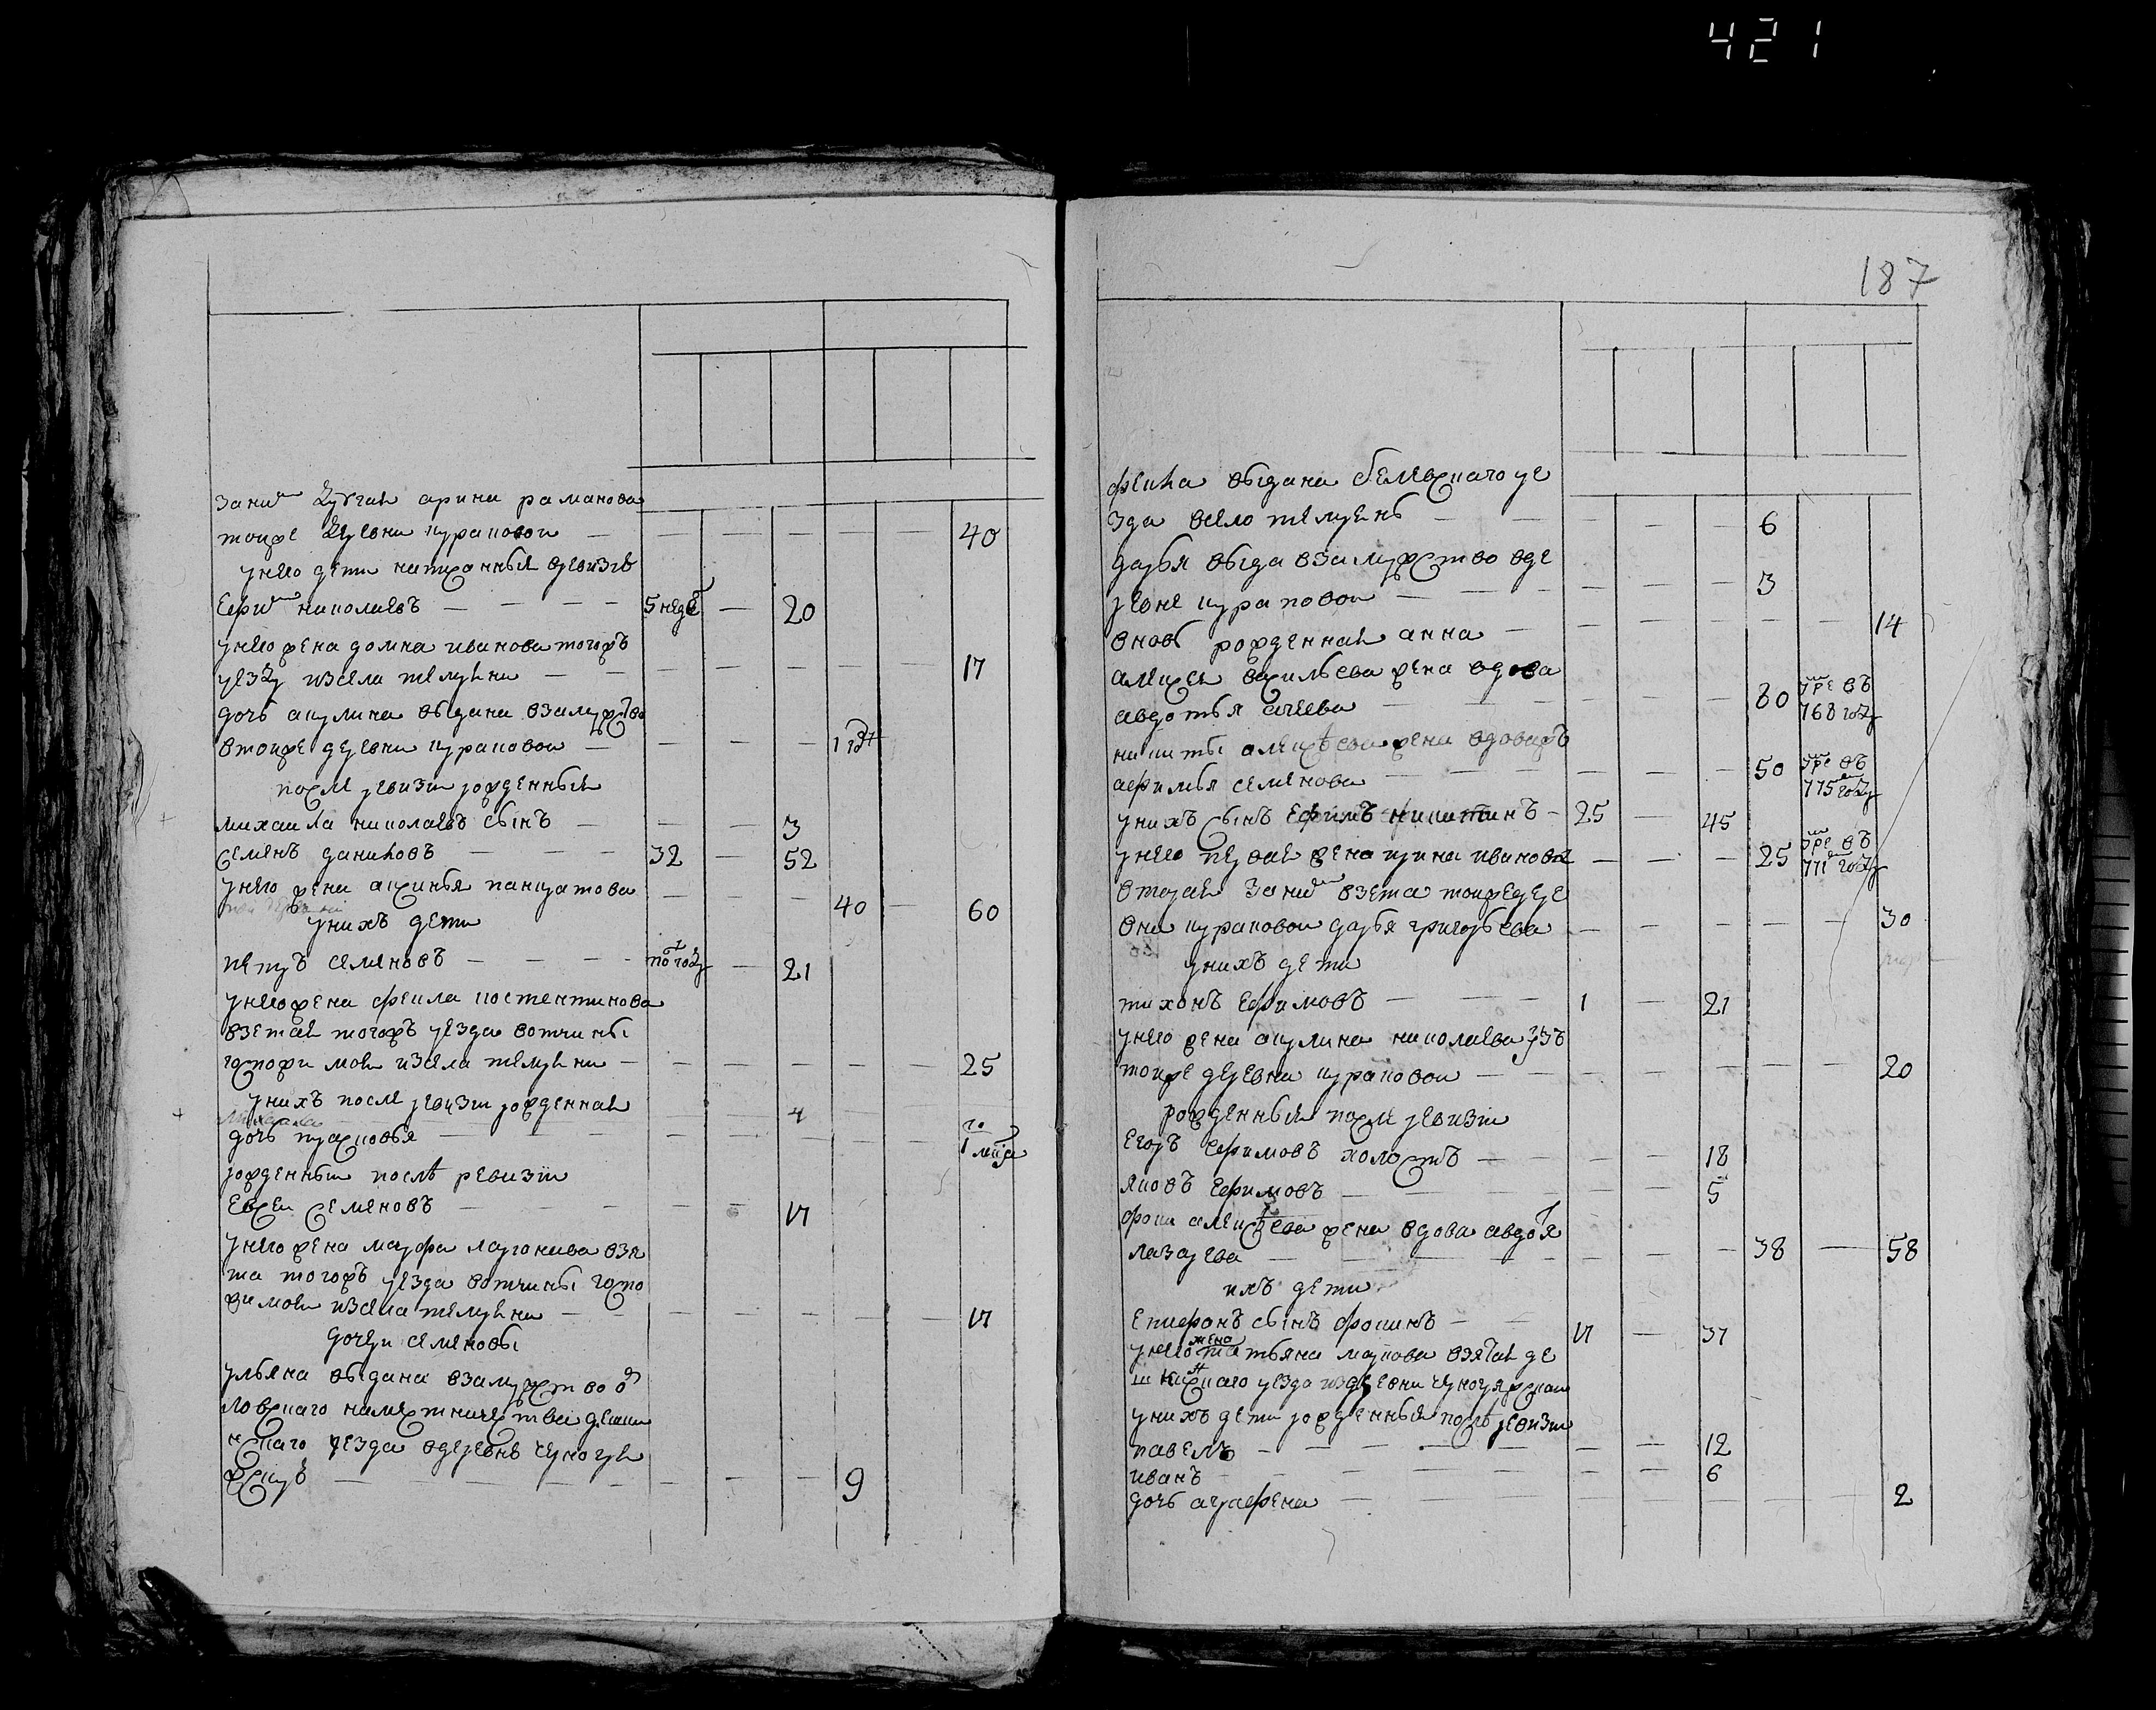 421
187
за ним другая арина раманова
тоиже деревни кураповой — 40
у него дети написанныя в ревизіе
Ефим николаевъ — 5 недел — 20
у него жена домна иванова тогожъ
уезду из села — 17
дочь акулина выдана в замужство
в тоиже деревни кураповой — 1 год
после ревизіи рожденныя
михаила николаевъ сынъ — 3
семенъ даниловъ — 32 — 52
у него жена аксинья панкратова — 40 — 60
у нихъ дети
петръ семеновъ — по год — 21
у него жена фекла костентинова
взетая тогожъ уезда вотчины
из села — 25
у нихъ после ревизіи рожденная
дочь прасковья — 1 меця
рожденныи послѣ ревизіи
Евсеи семеновъ — 17
у него жена марфа ларионива взя
та тогожъ уезда вотчины
из села — 17
дочери семеновы
ульяна выдана в замужство о
ловскаго наместничества дешки
нскаго уезда в деревне
— 9
фекла выдана уе
зда в село — 6
дарья выда в замужство в де
ревне кураповой — 3
вновь рожденная анна — 14
алексея васильева жена вдова
авдотья — 80 умре въ 768 году
никиты алексѣева жена вдоважъ
афимья семенова — 50 умре въ 775 году
у нихъ сынъ Ефимъ никитинъ — 25 — 45
у него первая жена ирина иванова — 25 умре въ 771 году
вторая за ним взета тоиже дере
вни кураповой дарья григорьева — 30
у нихъ дети
тихонъ Ефимовъ — 1 — 21
у него жена акулина николаева изъ
тоиже деревни кураповой — 20
рожденныя после ревизіи
Егоръ Ефимовъ холостъ — 18
яковъ Ефимовъ — 5
фоки алексѣева жена вдова авдотя
лазарева — 38 — 58
ихъ дети
Епифанъ сынъ фокинъ — 17 — 37
у него жена татьяна маркова взятая де
шкинскаго уезда из деревни
у нихъ дети рожденныя послѣ ревизіи
павелъ — 12
иванъ — 6
дочь аграфена — 2